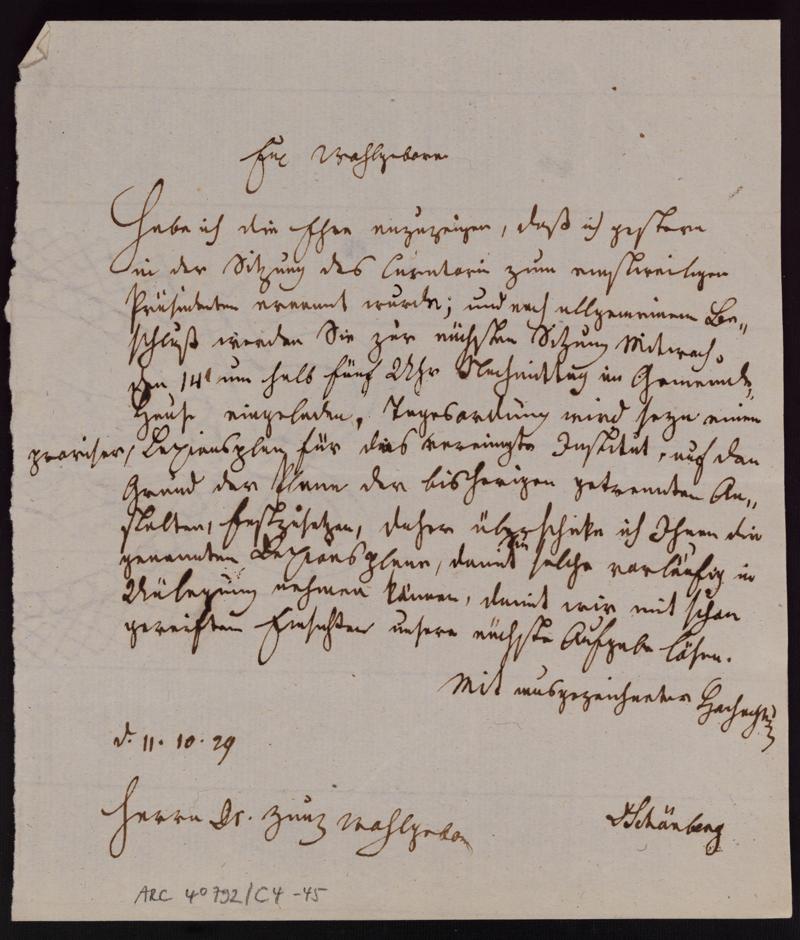 Euer Wohlgeboren
Habe ich die Ehre anzuzeigen, daß ich gestern
in der Sitzung des Curatorii zum einstweiligen
Präsidenten ernannt wurde; und nach allgemeinem Be-
schluß werden Sie zur nächsten Sitzung Mitwoch
den 14t um halb fünf Uhr Nachmittag im Gemeinde
Hause eingeladen. Tagesordnung wird seyn einen
Lexionsplan für das vereinigte Institut, auf den
Grund der Plane der bisherigen getrennten An-
stalten, festzusetzen, daher überschicke ich Ihnen die
genannten Lexionsplane, damit Sie solche vorläufig in
nehmen können, damit wir mit schon
gereiften Einsichten unsere nächste Aufgabe lösen.
Mit ausgezeichneter Hochachtg
d. 11. 10. 29
Herrn Dr. Zunz Wohlgeborn
Schönberg
ARC 4° 792/C4 -45